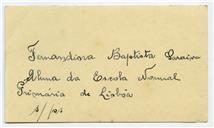 Fernandina Baptista Saraiva
Aluna da Escola Normal
Primária de Lisbôa